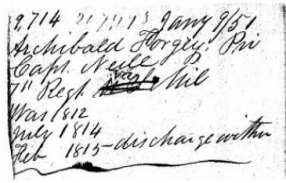 2,714 Jany 9/51
Archibald Forgey. Pri
Capt. Neill
7" Regt Mil
War 1812
July 1814
Feb 1815 - discharge within